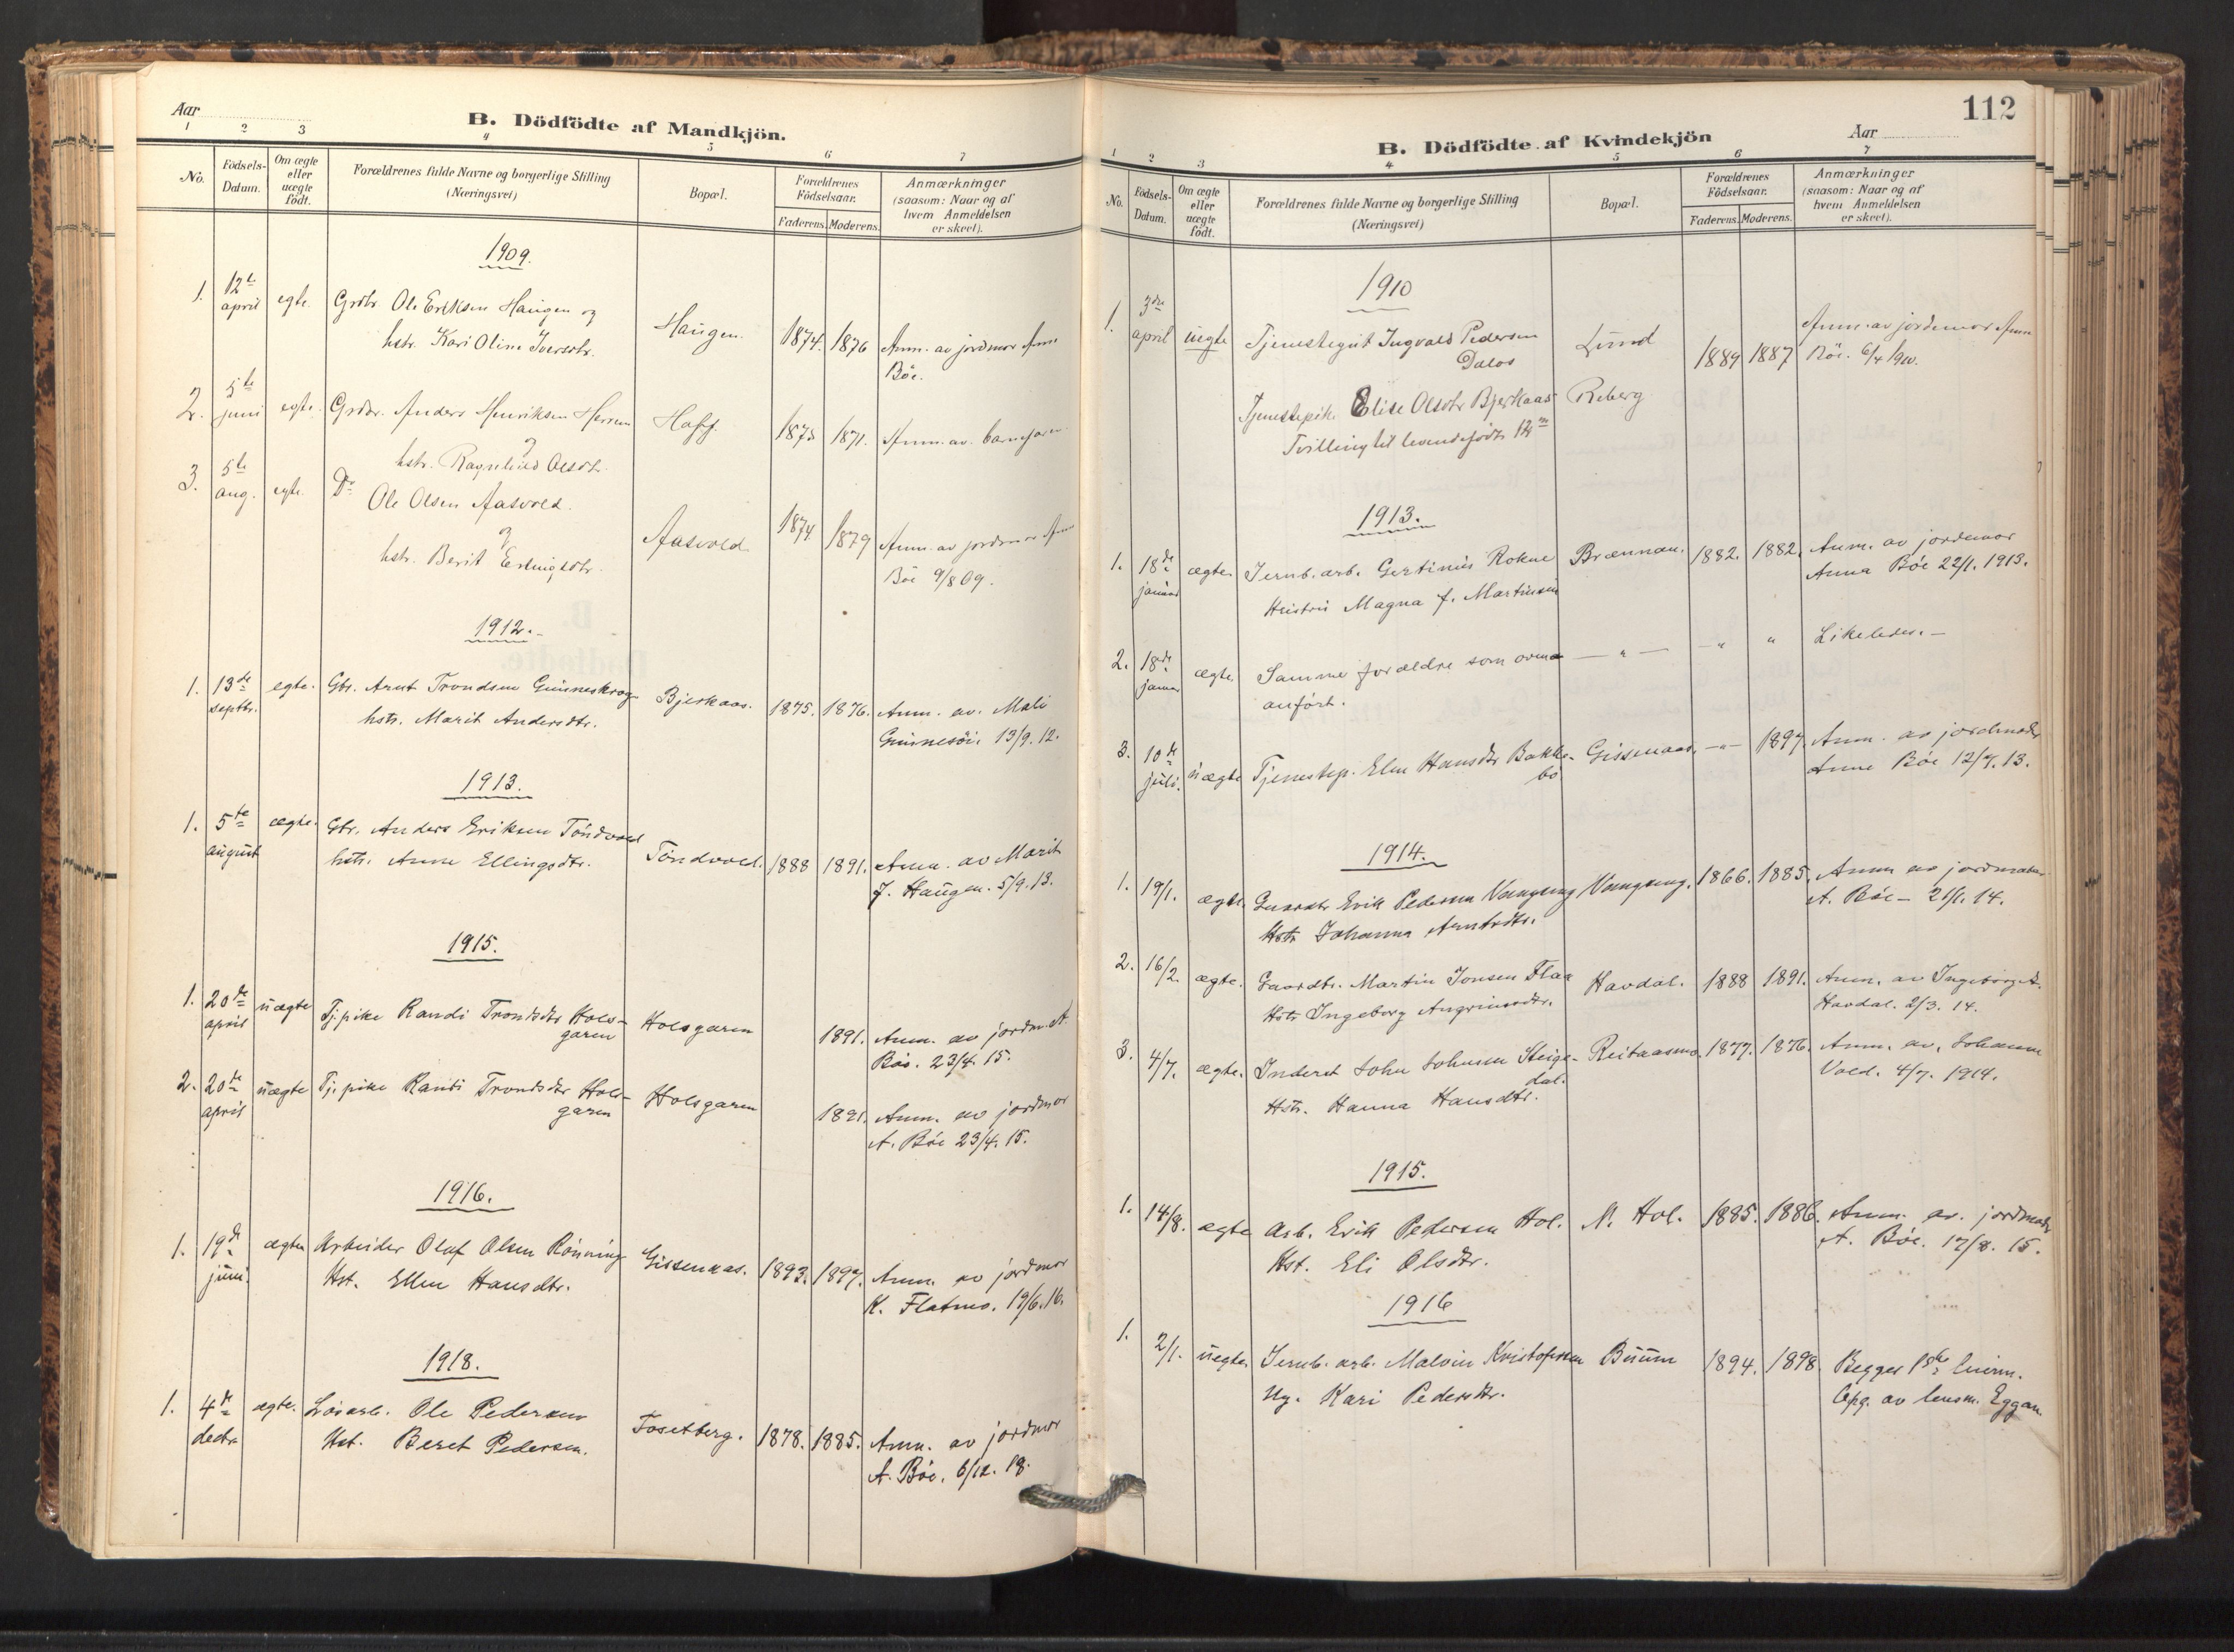 Aar
B. Dödfödte af Mandkjön.
1 2 3 4 5 6 7
No.
Födsels-
Datum.
Om ægte
eller
uægte
födt.
Forældrenes fulde Navne og borgerlige Stilling
(Næringsvei)
Bopæl.
Forældrenes
Födselsaar.
Faderens. Moderens.
Anmærkninger
(saasom: Naar og af
hvem Anmeldelsen
er skeet).
1909.
1. 12te april egte. Grdbr. Ole Eriksen Haugen og Haugen. 1874. 1876 Anm. av jordmor Anne
hstr. Kari Oline Iversdtr. Böe.
2. 5te juni egte. Grdbr. Anders Henriksen Herrem Hoff. 1873 1871. Anm. av barnefaren
og
hstr. Ragnhild Olsdtr.
3. 5te aug. egte. Do
Ole Olsen Aasvold. Aasvold. 1874 1879 Anm. av jordmor Anne
og
hstr. Berit Erlingsdtr. Böe 9/8 09.
1912.
1. 13de septbr. egte. Gbr. Arnt Trondsen Gunneskrog Bjerkaas. 1875. 1876. Anm. av. Mali
hstr. Marit Andersdtr. 13/9. 12.
1913.
1. 5te august ægte. Gbr. Anders Eriksen Töndvold Töndvold. 1888 1891. Anm. av Marit
hstr. Anne Ellingsdtr. J. Haugen. 5/9. 13.
1915.
1. 20de april uægte Tj.pike Randi Trondsdtr Hols- Holsgaren 1891. Anm. av jordm. A.
garen Böe. 23/4. 15.
2. 20de april uægte Tj.pike Randi Trondsdtr Hols- Holsgaren 1891. Anm. av jordmor
garen A. Böe 23/4. 15.
1916.
1. 19de juni. ægte Arbeider Olaf Olsen Rönning Gissenaas. 1893. 1897. Anm. av jordmor
Hst. Ellen Hansdtr. K. Flatmo. 19/6. 16.
1918.
1. 4de decbr ægte. Lösarb. Ole Pedersen Fosetberg. 1878. 1885. Anm. av jordmor
Hst. Beret Pedersen. A. Böe. 6/12. 18.
112
B. Dödfödte af Kvindekjön
Aar
1 2 3 4 5 6 7
No.
Födsels-
Datum.
Om ægte
eller
uægte
födt.
Forældrenes fulde Navne og borgerlige Stilling
(Næringsvei)
Bopæl.
Forældrenes
Födselsaar.
Faderens. Moderens.
Anmærkninger
(saasom: Naar og af
hvem Anmeldelsen
er skeet).
1910
1. 3die april uegte Tjenestegut Ingvald Pedersen Lund 1889 1887 Anm. av jordmor Anne
Dalos Böe. 6/4 1910.
Tjenestepike Elise Olsdtr Bjerkaas Reberg
Tvilling til levendefødt
1913.
1. 18de januar ægte. Jernb. arb. Gertinius Rokne Brænnan. 1882. 1882. Anm. av jordmor
Hustru Magna f. Martinsen Anna Böe 22/1. 1913.
2. 18de januar ægte Samme forældre som oven — " — — " " Likeledes. —
anfört.
3. 10de juli. uægte Tjenestep. Elen Hansdtr Bakke- Gissenaas. — " — 1897. Anm. av jordmoder
bö Anne Böe 12/7. 13.
1914.
1. 19/1. ægte. Gaardbr Erik Pedersen Vangeng Vangeng. 1866. 1885. Anm av jordmoder
Hstr Johanna Arntsdtr. A. Böe – 21/1. 14.
2. 16/2. ægte. Gaardbr. Martin Jonsen Flaa Havdal. 1888 1891. Anm. av Ingeborg A.
Hstr Ingeborg Angrimsdtr. Havdal. 2/3. 14.
3. 4/7. ægte. Inderst John Johnsen Steige- Reitaasmo. 1877. 1876. Anm. av. Johanna
dal.
Hstr. Hanna Hansdtr. Vold. 4/7. 1914.
1915.
1. 14/8. ægte Arb. Erik Pedersen Hol. N. Hol. 1885. 1886. Anm. av. jordmoder
Hst. Eli Olsdtr. A. Böe. 17/8. 15.
1916
1. 2/1. uegte Jernb. arb. Malvin Kristofersen Buum 1894. 1898 Begges 1ste
Ug. Kari Pedersdtr. Opg. av lensm. Eggan.